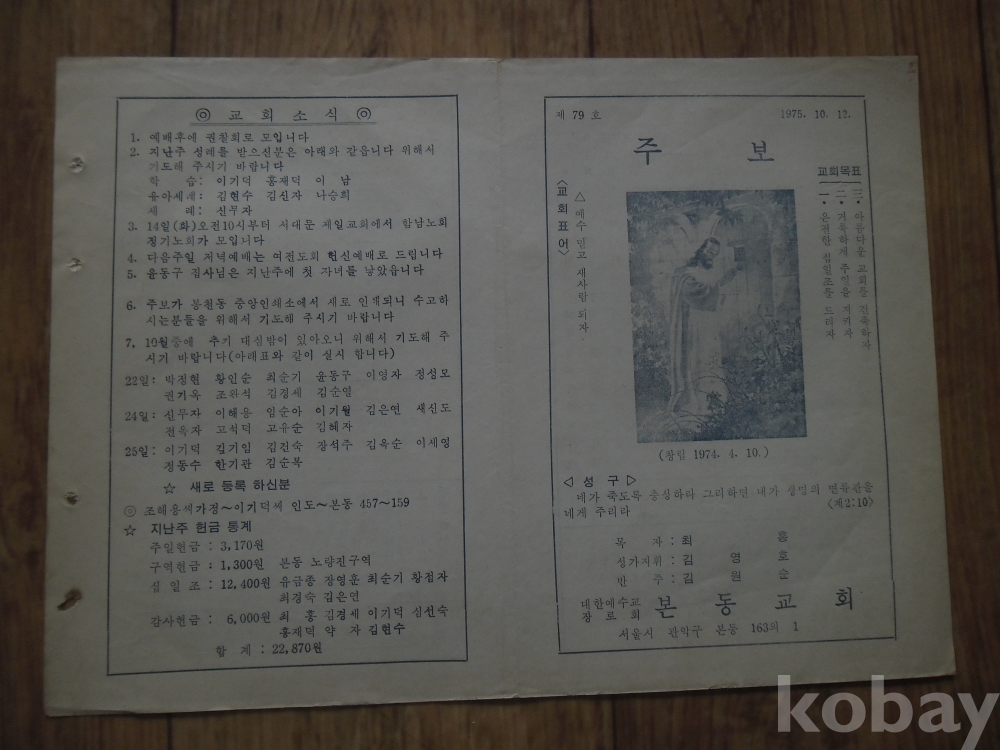 ◎ 교회소식 ◎
1. 예배후에 권찰회로 모입니다
2. 지난주 성례를 받으신분은 아래와 같읍니다 위해서
기도해 주시기 바랍니다
학 습: 이기덕 홍재덕 이 남
유아세례: 김현수 김신자 나승희
세 례: 신무자
3. 14일(화)오전10시부터 서대문 제일교회에서 함남노회
정기노회가 모입니다
4. 다음주일 저녁예배는 여전도회 헌신예배로 드립니다
5. 윤동구 집사님은 지난주에 첫 자녀를 낳았읍니다
6. 주보가 봉천동 중앙인쇄소에서 새로 인쇄되니 수고하
시는분들을 위해서 기도해 주시기 바랍니다
7. 10월중에 추기 대심방이 있아오니 위해서 기도해 주
시기 바랍니다(아래표와 같이 실시 합니다)
22일: 박정현 황인순 최순기 윤동구 이영자 정성모
권기옥 조완석 김경세 김순일
24일: 신무자 이해용 임순아 이기월 김은연 새신도
전옥자 고석덕 고유순 김혜자
25일: 이기덕 김기임 김건숙 장석주 김옥순 이세영
정동수 한기관 김순복
☆ 새로 등록 하신분
◎ 조해웅씨가정~이기덕씨 인도~본동 457~159
☆ 지난주 헌금 통계
주일헌금 : 3,170원
구역헌금 : 1,300원 본동 노량진구역
십 일 조 : 12,400원 유금종 장영훈 최순기 황점자
최경숙 김은연
감사헌금 : 6,000원 최 홍 김경세 이기덕 심선숙
홍재덕 약 자 김현수
합 계 : 22,870원
제 79 호
1975. 10. 12.
주 보
교회목표
一. 온전한 십일조를 드리자
二. 거룩하게 주일을 지키자
三. 아름다운 교회를 건축하자
<교회표어>
△ 예수 믿고 새사람 되자
(창립 1974. 4. 10.)
◁ 성 구 ▷
네가 죽도록 충성하라 그리하면 내가 생명의 면류관을
네게 주리라
<계2:10>
목 자 : 최 홍
성가지휘 : 김 영 호
반 주 : 김 원 순
대한예수교
장 로 회
본 동 교 회
서울시 관악구 본동 163의 1
kobay